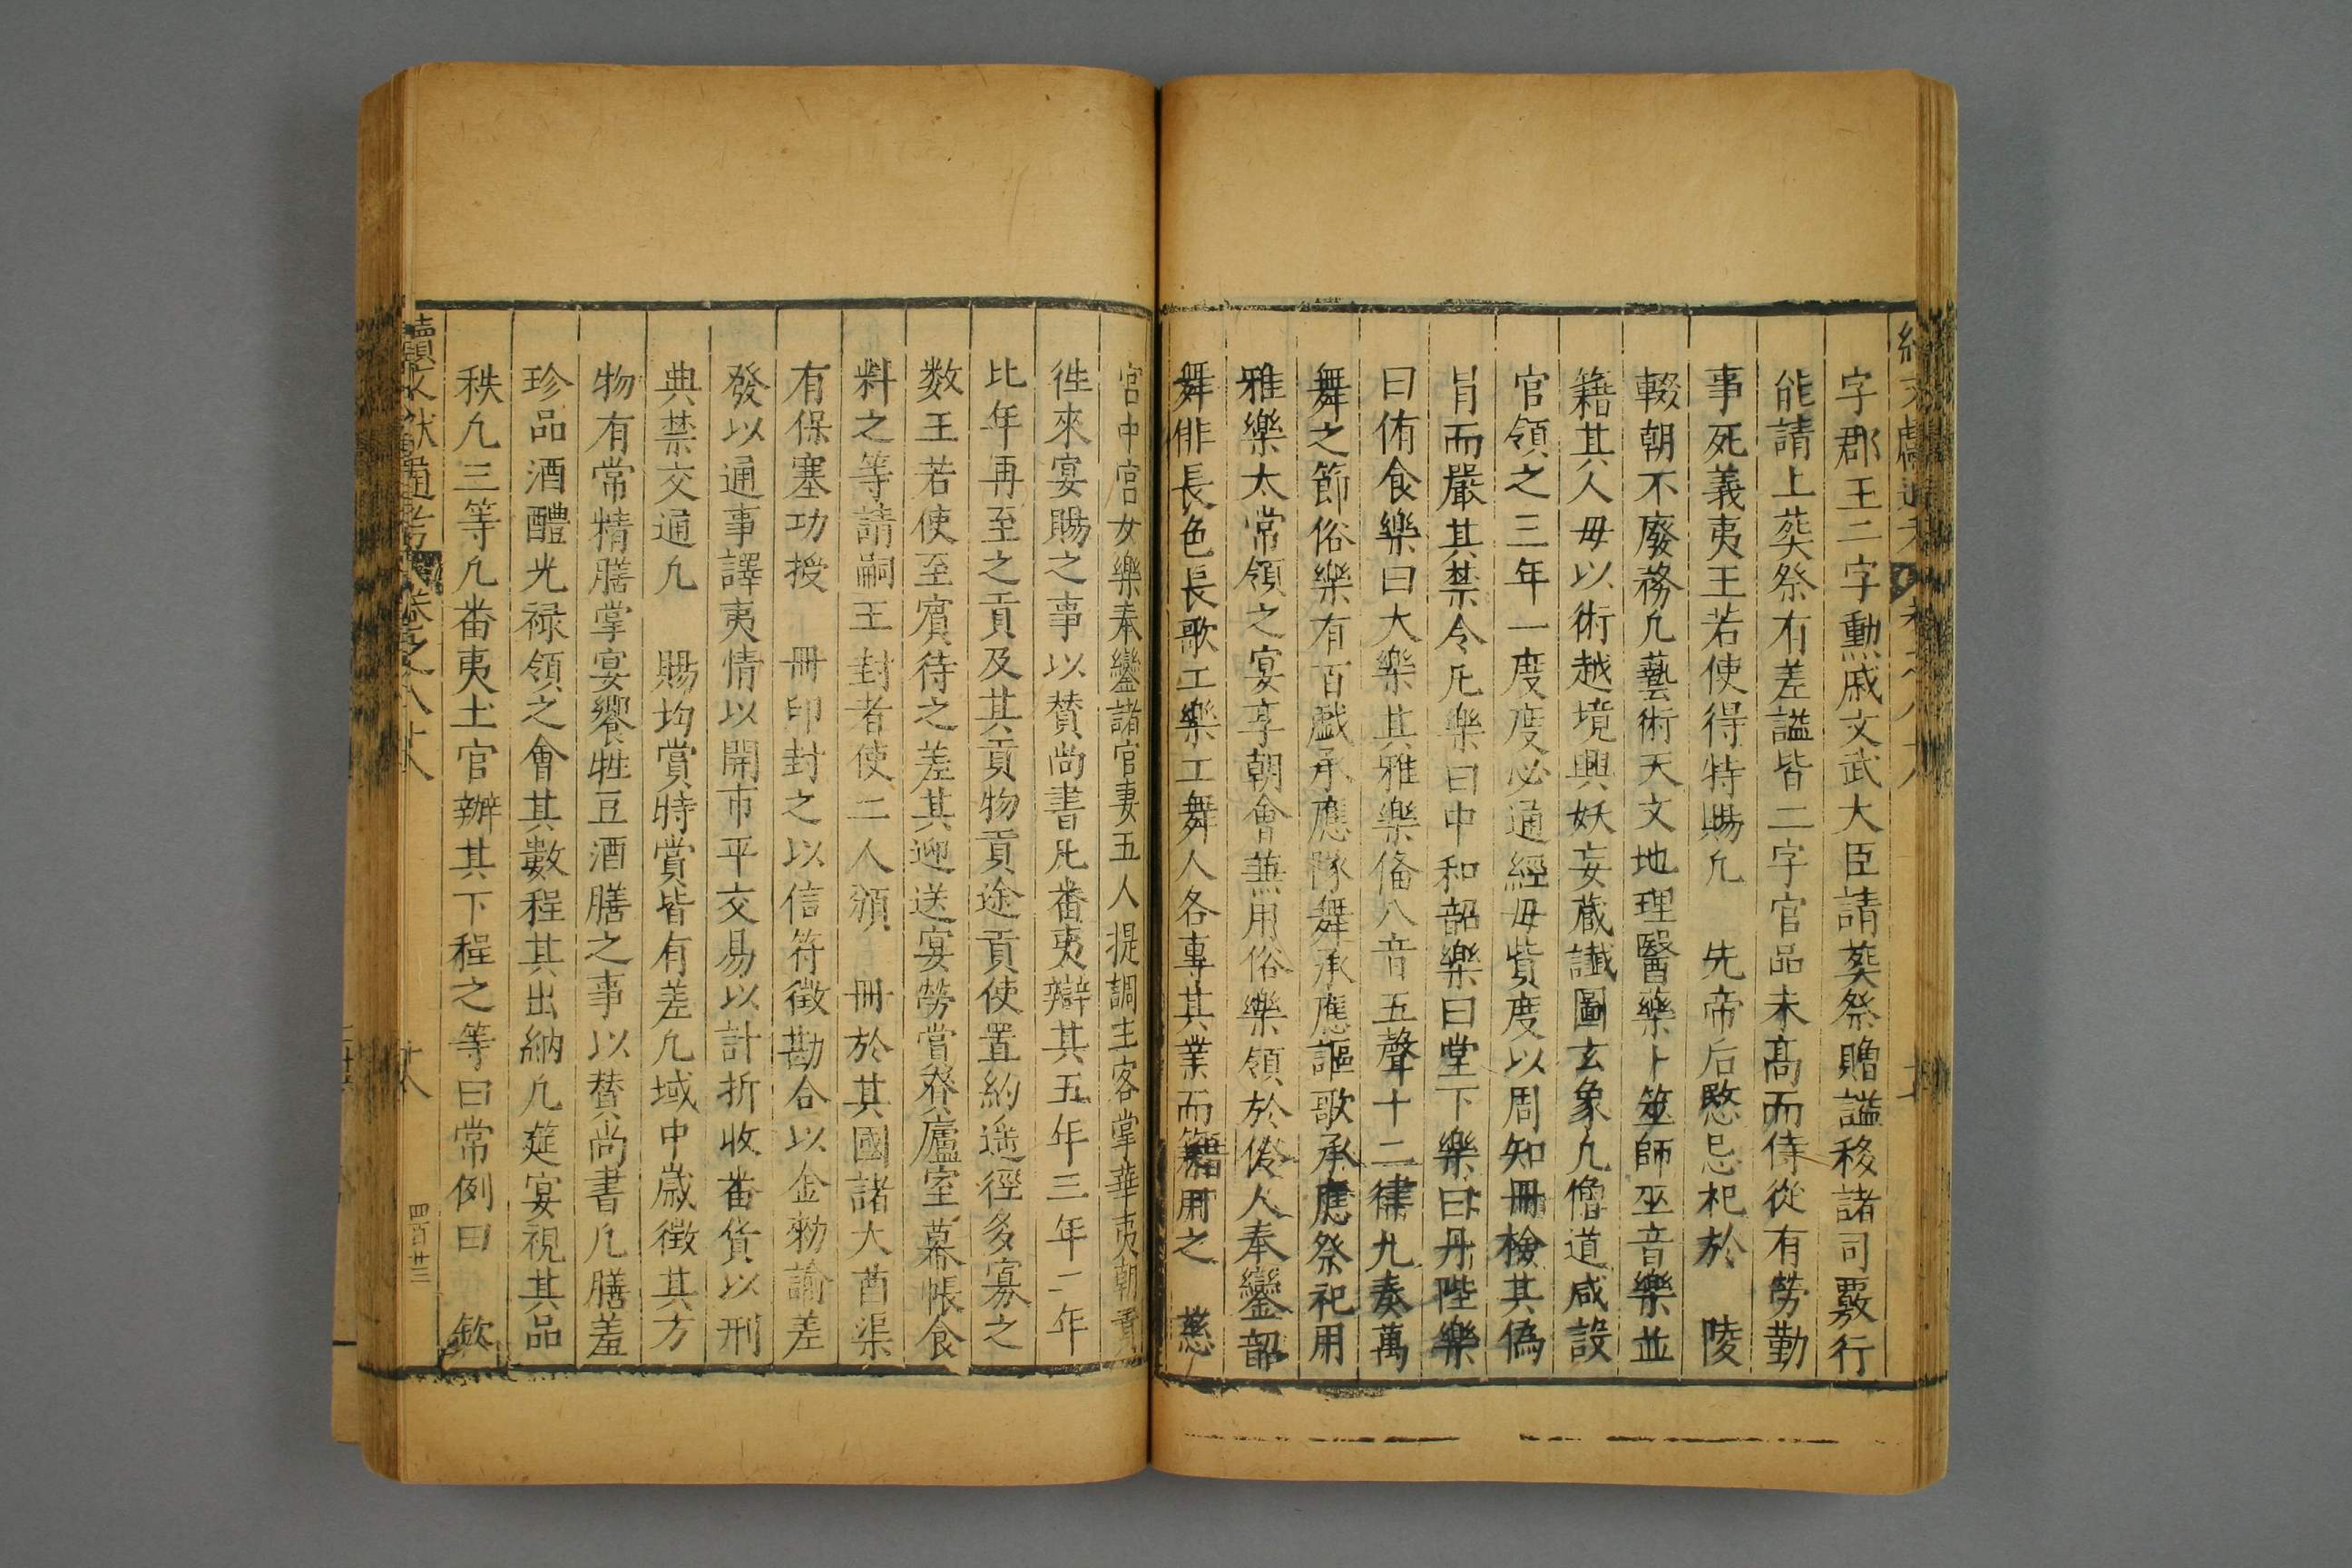 字郡王二字勳戚文武大臣請葬祭贈諡移諸司覈行
能請上葬祭有差諡皆二字官品未高而侍從有勞勤
事死義夷王若使得特賜凢　先帝后愍忌祀於　陵
輟朝不廢務凢藝術天文地理醫藥卜筮師巫音樂並
籍其人毋以術越境興妖妄藏讖圖玄象凢僧道咸設
官領之三年一度度必通經毋貲度以周知冊檢其偽
冐而嚴其禁令凢樂曰中和韶樂曰堂下樂曰丹陛樂
曰侑食樂曰大樂其雅樂俻八音五聲十二律九奏萬
舞之節俗樂有百戲承應隊舞承應謳歌承應祭祀用
雅樂太常領之宴享朝會兼用俗樂領於伶人奉鑾韶
舞俳長色長歌工樂工舞人各專其業而籍用之　慈
宮中宮女樂奉鑾諸官妻五人提調主客掌華夷朝貢
徃來宴賜之事以賛尚書凢番夷辯其五年三年二年
比年再至之貢及其貢物貢途貢使置約遥徑多寡之
数王若使至賔待之差其迎送宴勞賞賚廬室幕帳食
料之等請嗣王封者使二人頒　冊於其國諸大酋渠
有保塞功授　冊印封之以信符徵勘合以金勑諭差
發以通事譯夷情以開市平交易以計折收番貨以刑
典禁交通凢　賜均賞時賞皆有差凢域中嵗徵其方
物有常精膳掌宴饗牲豆酒膳之事以賛尚書凢膳羞
珍品酒醴光禄領之會其數程其出納凢筵宴視其品
秩凢三等凢番夷土官辦其下程之等曰常例曰　欽
續文獻通考　卷之八十八
四百廿三